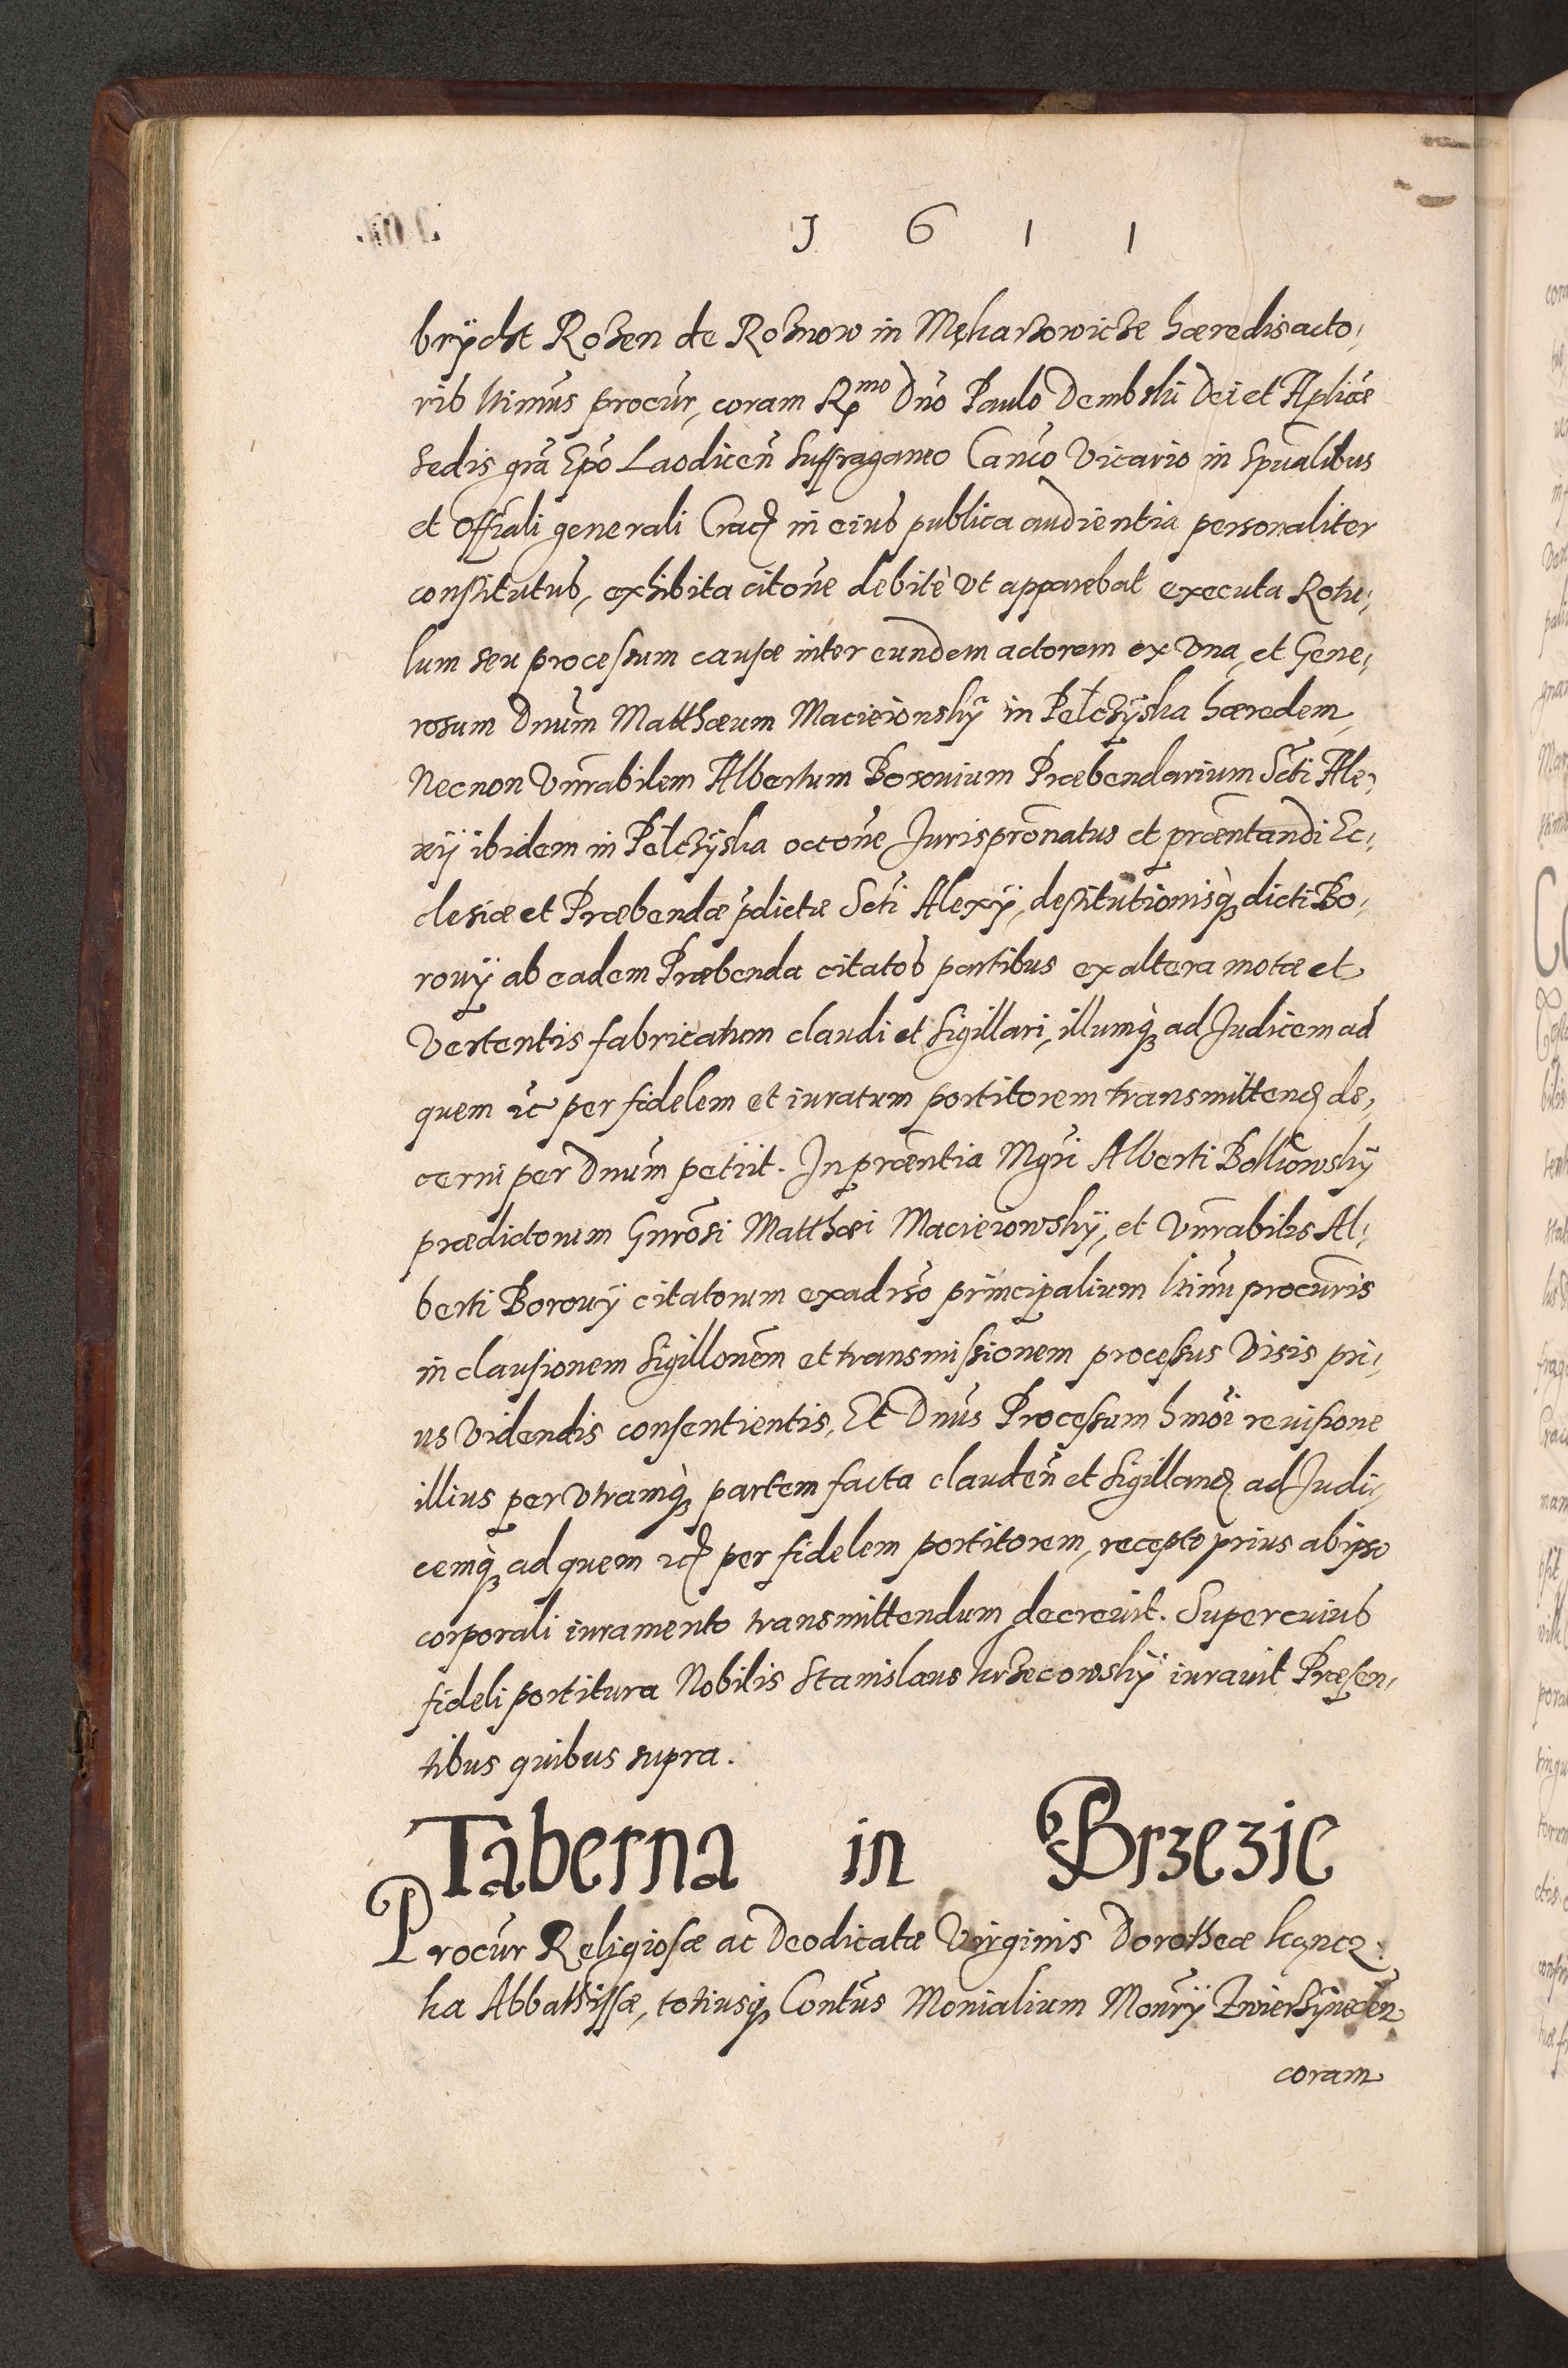 1 6 1 1
brÿcht Rozen de Roznow in Mękarzowicze hæredis acto,
ris ltimus procūr, coram Rmo Dnō Paulo Dembski Dei et Aplicæ
sedis grā Epō Laodiceñ suffraganeo Canco Vicario in spualibus
et Offiali generali Crac in eius publica audientia personaliter
constitutus, exhibita citōne debitè vt apparebat executa Rotu,
lum seu processum causæ inter eundem actorem ex vna, et Gene,
rosum Dnūm Matthæum Macieionskÿ in Pełczÿska hæredem,
Necnon Vnrabilem Albertum Borouium Præbendarium Scti Ale,
xÿ ibidem in Pełczÿska occōne Jurisprōnatus et præntandi Ec,
clesiæ et Præbendæ pdictæ Scti Alexÿ, destitutionisq dicti Bo,
rouÿ ab eadem Præbenda citatos partibus ex altera motæ et
vertentis fabricatum claudi et sigillari, illumq̀ ad Judicem ad
quem etc per fidelem et iuratum portitorem transmittend de,
cerni per Dnūm petiit. In præntia Mgri Alberti
prædictorum Gnrōsi Matthæi Macieiowskÿ, et Vnrabilis Al,
berti Borouÿ citatorum exadrso principalium ltimi procūris
in clausionem sigillonem et transmissionem processus visis pri,
us videndis consentientis, Et Dnūs Processum hmōi reuisione
illius per vtramq̀ partem facta claudeñ et sigilland ad Judi,
cemq̀ ad quem etc per fidelem portitorem, recepto prius ab ipso
corporali iuramento transmittendum decreuit. Super cuius
fideli portitura Nobilis Stanislaus krzecowskÿ iurauit Præsen,
tibus quibus supra.
Taberna in Brzezie
Procūr Religiosæ ac Deodicatæ Virginis Dorotheæ kącz,
ka Abbatissæ, totiusq Contūs Monialium Monrÿ Zwierzÿneceñ
coram